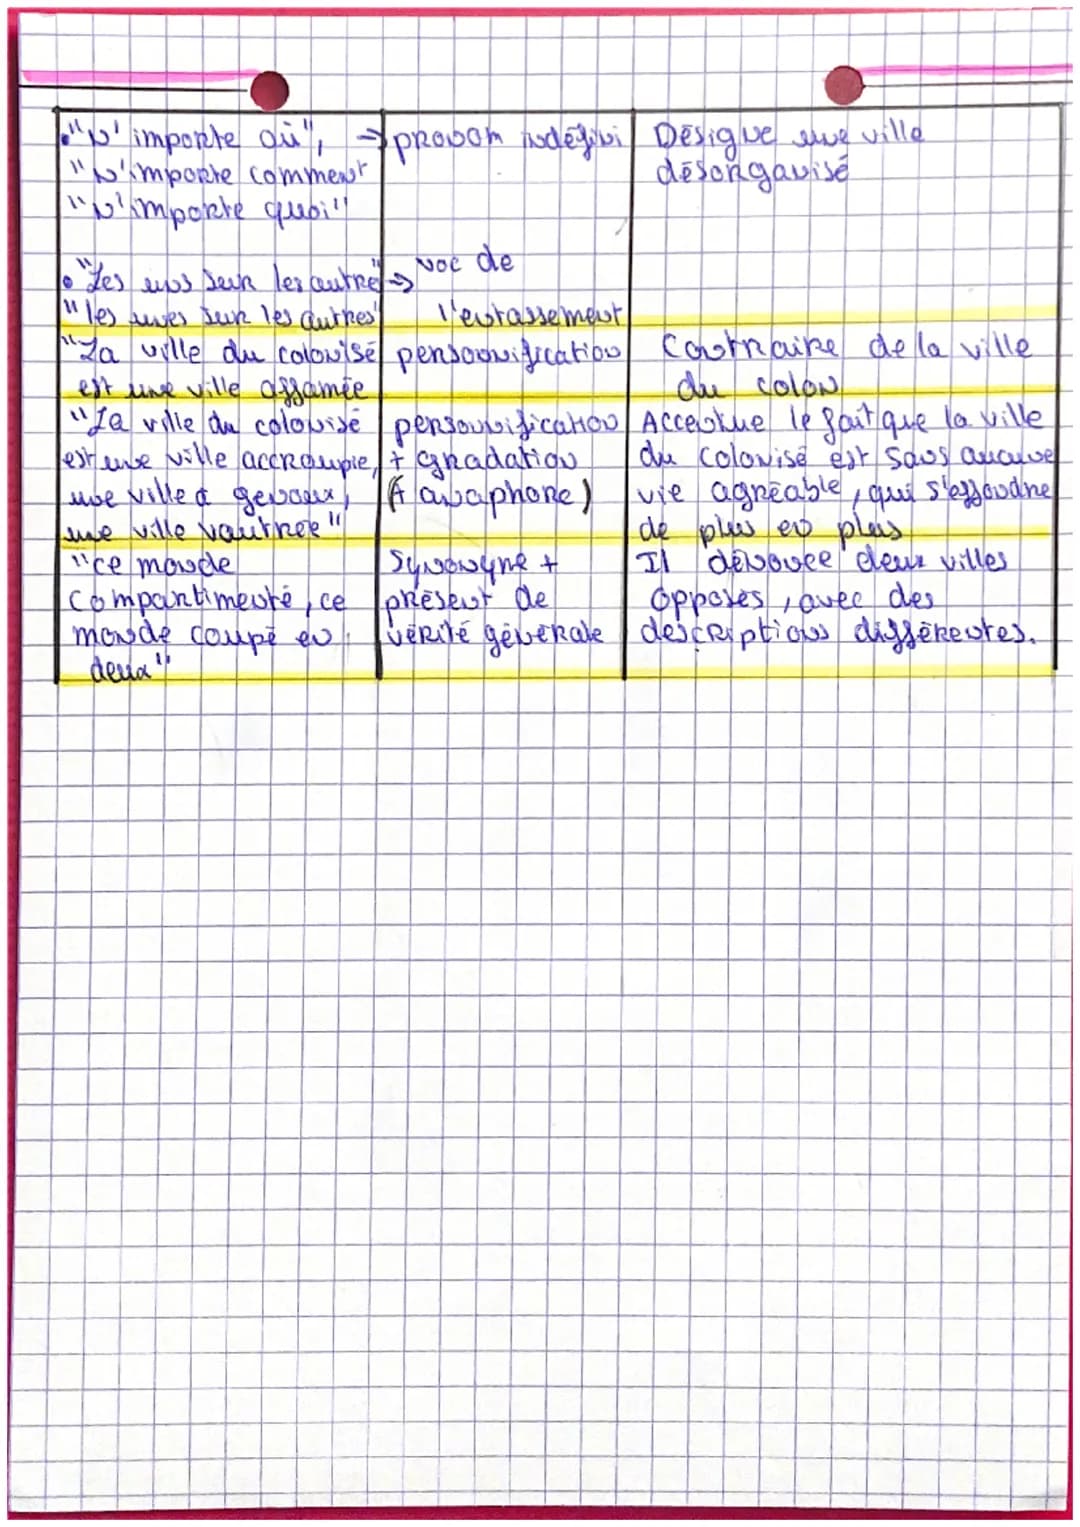 • "N'importe où", → pronom indéfini Désigne une ville
"N'importe comment désorganisé
"N'importe quoi"
• "Les uns sur les autre" → voc de
"les unes sur les autres" l'entassement
"La ville du colonisé personnification Contraire de la ville
est une ville affamée du colon
"La ville du colonisé personnification Accentue le fait que la ville
est une ville accroupie, + gradation du colonisé est sans aucune
une ville à genoux, (+ anaphore) vie agréable, qui s'effondre
une ville vautrée" de plus en plus
"ce monde Synonyne + Il dénonce deux villes
compartimenté, ce présent de opposés, avec des
monde coupé en vérité générale descriptions différentes.
deux"